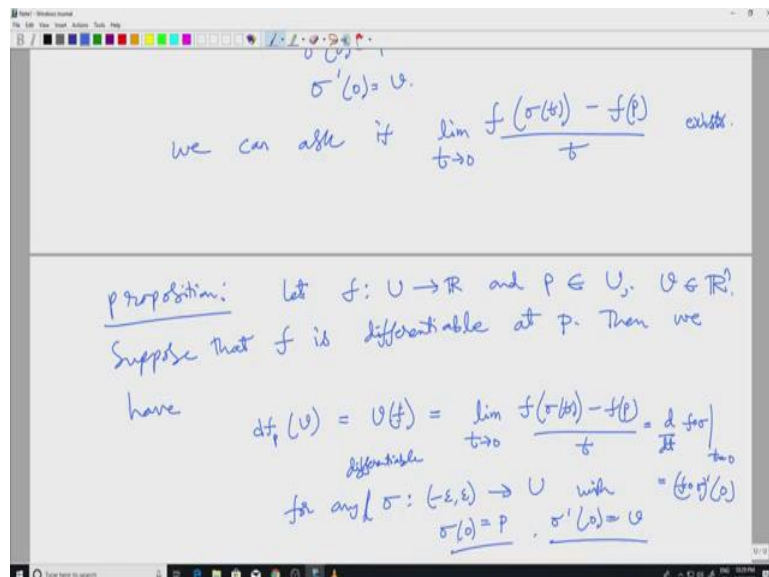 Note1 - Windows Journal
File Edit View Insert Actions Tools Help
σ'(0) = v.
we can ask if lim t→0 f(σ(t)) - f(p) / t exists.
proposition: Let f: U → ℝ and p ∈ U, v ∈ ℝⁿ.
Suppose that f is differentiable at p. Then we
have
df_p(v) = v(f) = lim t→0 f(σ(t)) - f(p) / t = d/dt f∘σ |t=0
= (f∘σ)'(0)
differentiable
for any σ: (-ε, ε) → U with
σ(0) = p, σ'(0) = v
Type here to search